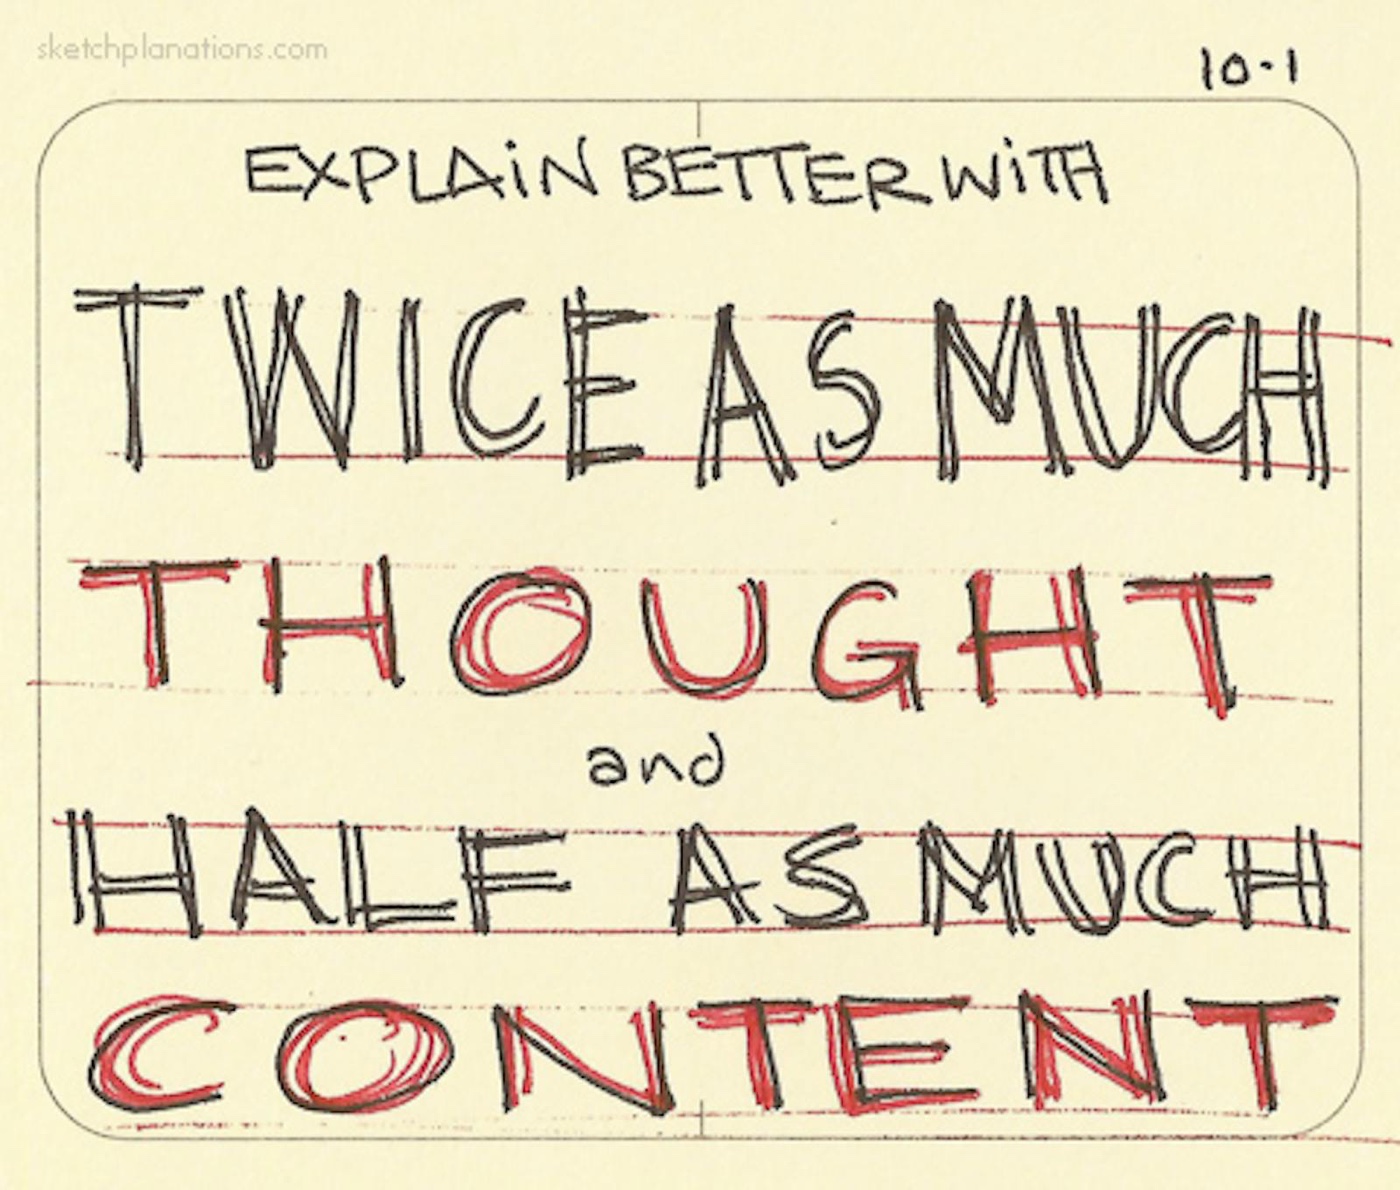 sketchplanations.com
10.1
EXPLAIN BETTER WITH
TWICE AS MUCH
THOUGHT
and
HALF AS MUCH
CONTENT